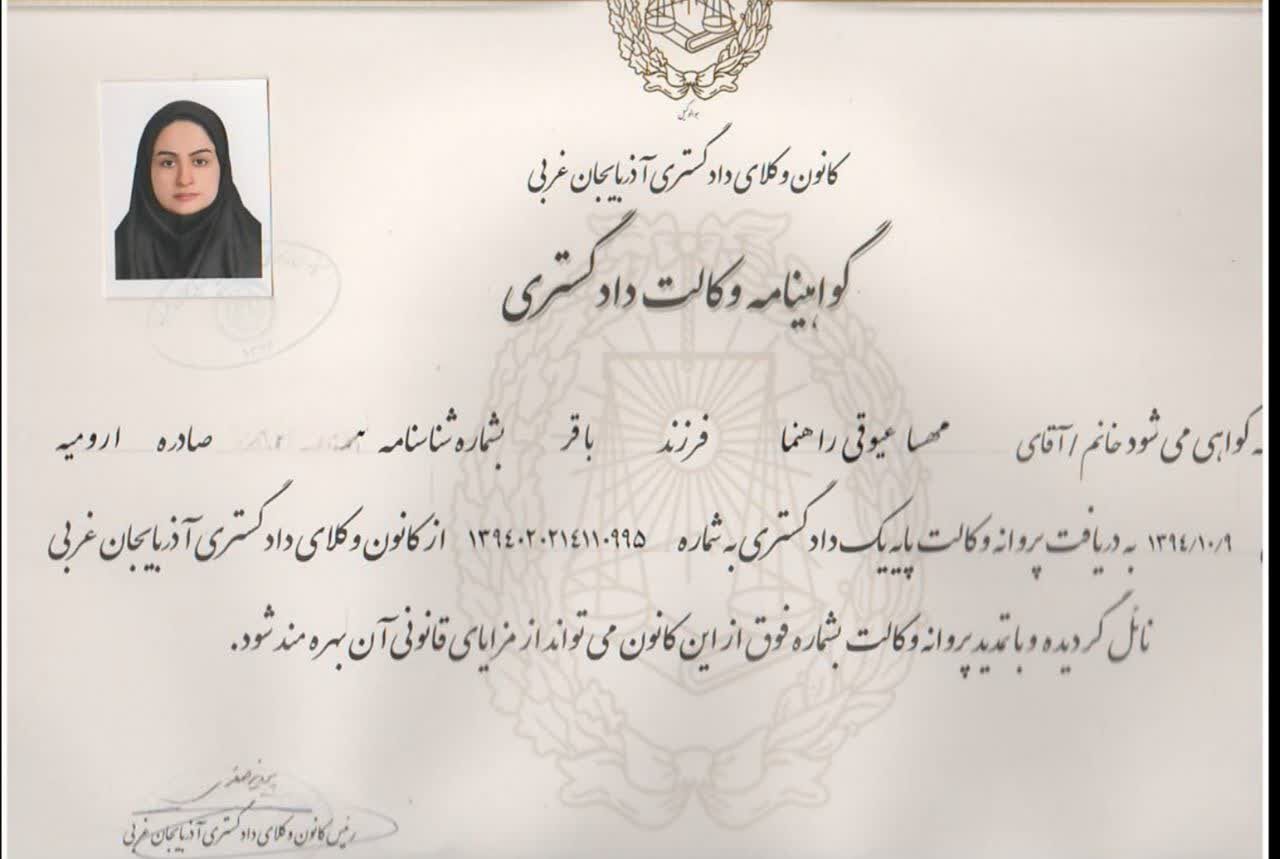 هوالوکیل
کانون وکلای دادگستری آذربایجان غربی
گواهینامه وکالت دادگستری
گواهی می شود خانم / آقای مهسا عیوقی راهنما فرزند باقر بشماره شناسنامه صادره ارومیه
۱۳۹٤/۱۰/۹ به دریافت پروانه وکالت پایه یک دادگستری به شماره ۱۳۹٤۰۲۰۲۱٤۱۱۰۹۹۵ از کانون وکلای دادگستری آذربایجان غربی
نائل گردیده و با تمدید پروانه وکالت بشماره فوق از این کانون می تواند از مزایای قانونی آن بهره مند شود.
رئیس کانون وکلای دادگستری آذربایجان غربی